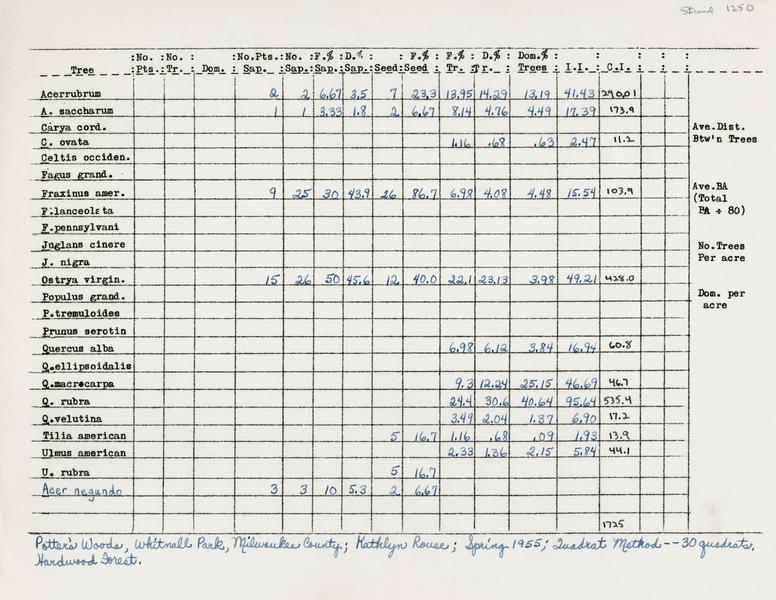 Stand 1250
:No. :No. : :No.Pts.:No. :F.% :D.% : : F.% : F.% : D.% : Dom.% : : : : :
Tree :Pts.:Tr. : Dom. : Sap. :Sap.:Sap.:Sap.:Seed:Seed : Tr. : Tr. : Trees : I.I. : C.I. : : :
Acerrubrum 2 2 6.67 3.5 7 23.3 13.95 14.29 13.19 41.43 290.01
A. saccharum 1 1 3.33 1.8 2 6.67 8.14 4.76 4.49 17.39 173.9
Carya cord.
C. ovata 1.16 .68 .63 2.47 11.2
Celtis occiden.
Fagus grand.
Fraxinus amer. 9 25 30 43.9 26 86.7 6.98 4.08 4.48 15.54 103.9
F.lanceolata
F.pennsylvani
Juglans cinere
J. nigra
Ostrya virgin. 15 26 50 45.6 12 40.0 22.1 23.13 3.98 49.21 428.0
Populus grand.
P.tremuloides
Prunus serotin
Quercus alba 6.98 6.12 3.84 16.94 60.8
Q.ellipsoidalis
Q.macrocarpa 9.3 12.24 25.15 46.69 46.7
Q. rubra 24.4 30.6 40.64 95.64 535.4
Q.velutina 3.49 2.04 1.37 6.90 17.2
Tilia american 5 16.7 1.16 .68 .09 1.93 13.9
Ulmus american 2.33 1.36 2.15 5.84 44.1
U. rubra 5 16.7
Acer negundo 3 3 10 5.3 2 6.67
1725
Ave.Dist.
Btw'n Trees
Ave.BA
(Total
BA ÷ 80)
No.Trees
Per acre
Dom. per
acre
Potter's Woods, Whitnall Park, Milwaukee County; Kathlyn Rouse; Spring 1955; Quadrat Method -- 30 quadrats,
Hardwood Forest.